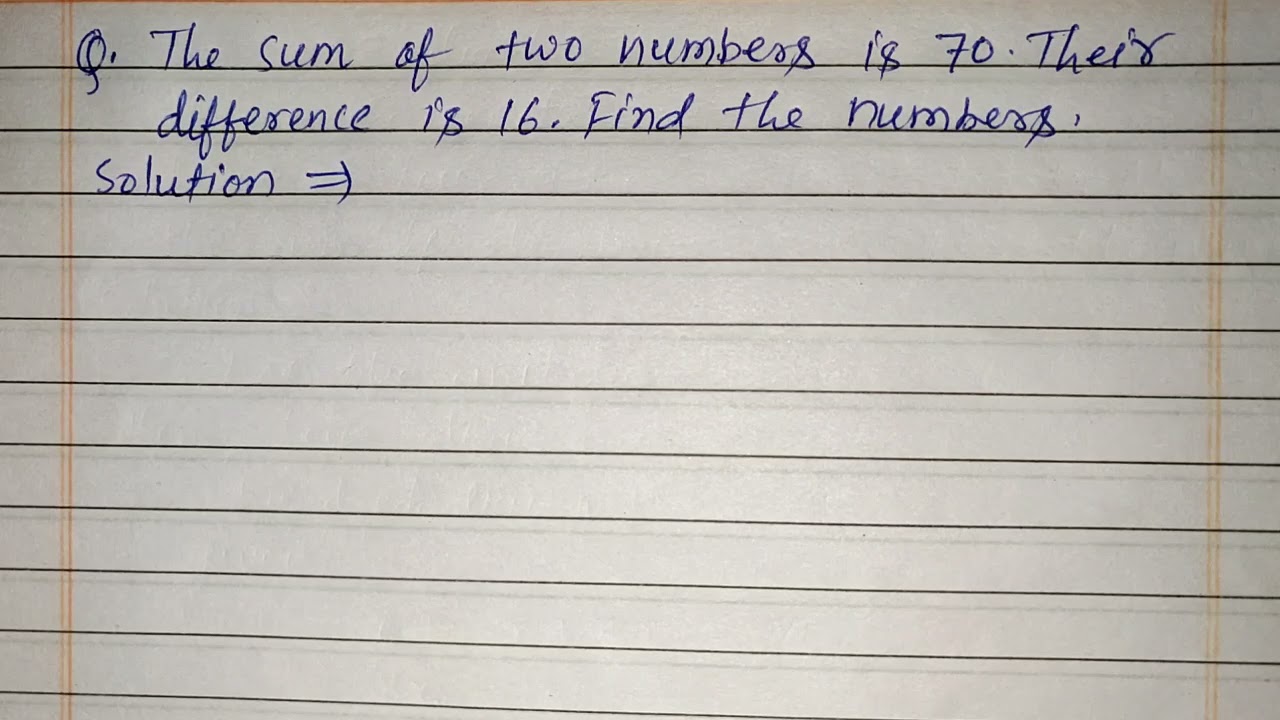 Q. The sum of two numbers is 70. Their
difference is 16. Find the numbers.
Solution ⇒